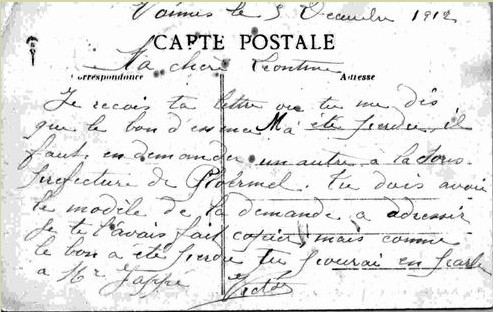 Vannes le 5 Decembre 1912
CARTE POSTALE
Ma chere Leontine
Correspondance Adresse
Je recois ta lettre ou tu me dis
que le bon d'essence M'a été perdu, il
faut en demander un autre a la Sous
prefecture de Ploermel. tu dois avoir
le modèle de la demande a adresser
Je te l'avais fait copier, mais comme
le bon a été perdu tu pourai en parler
a Mr Jappé
Victor